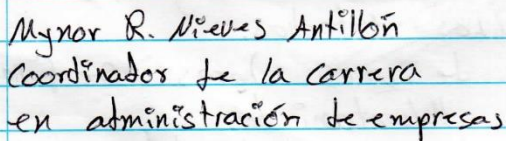 Mynor R. Nieves Antillón
Coordinador de la carrera
en administración de empresas